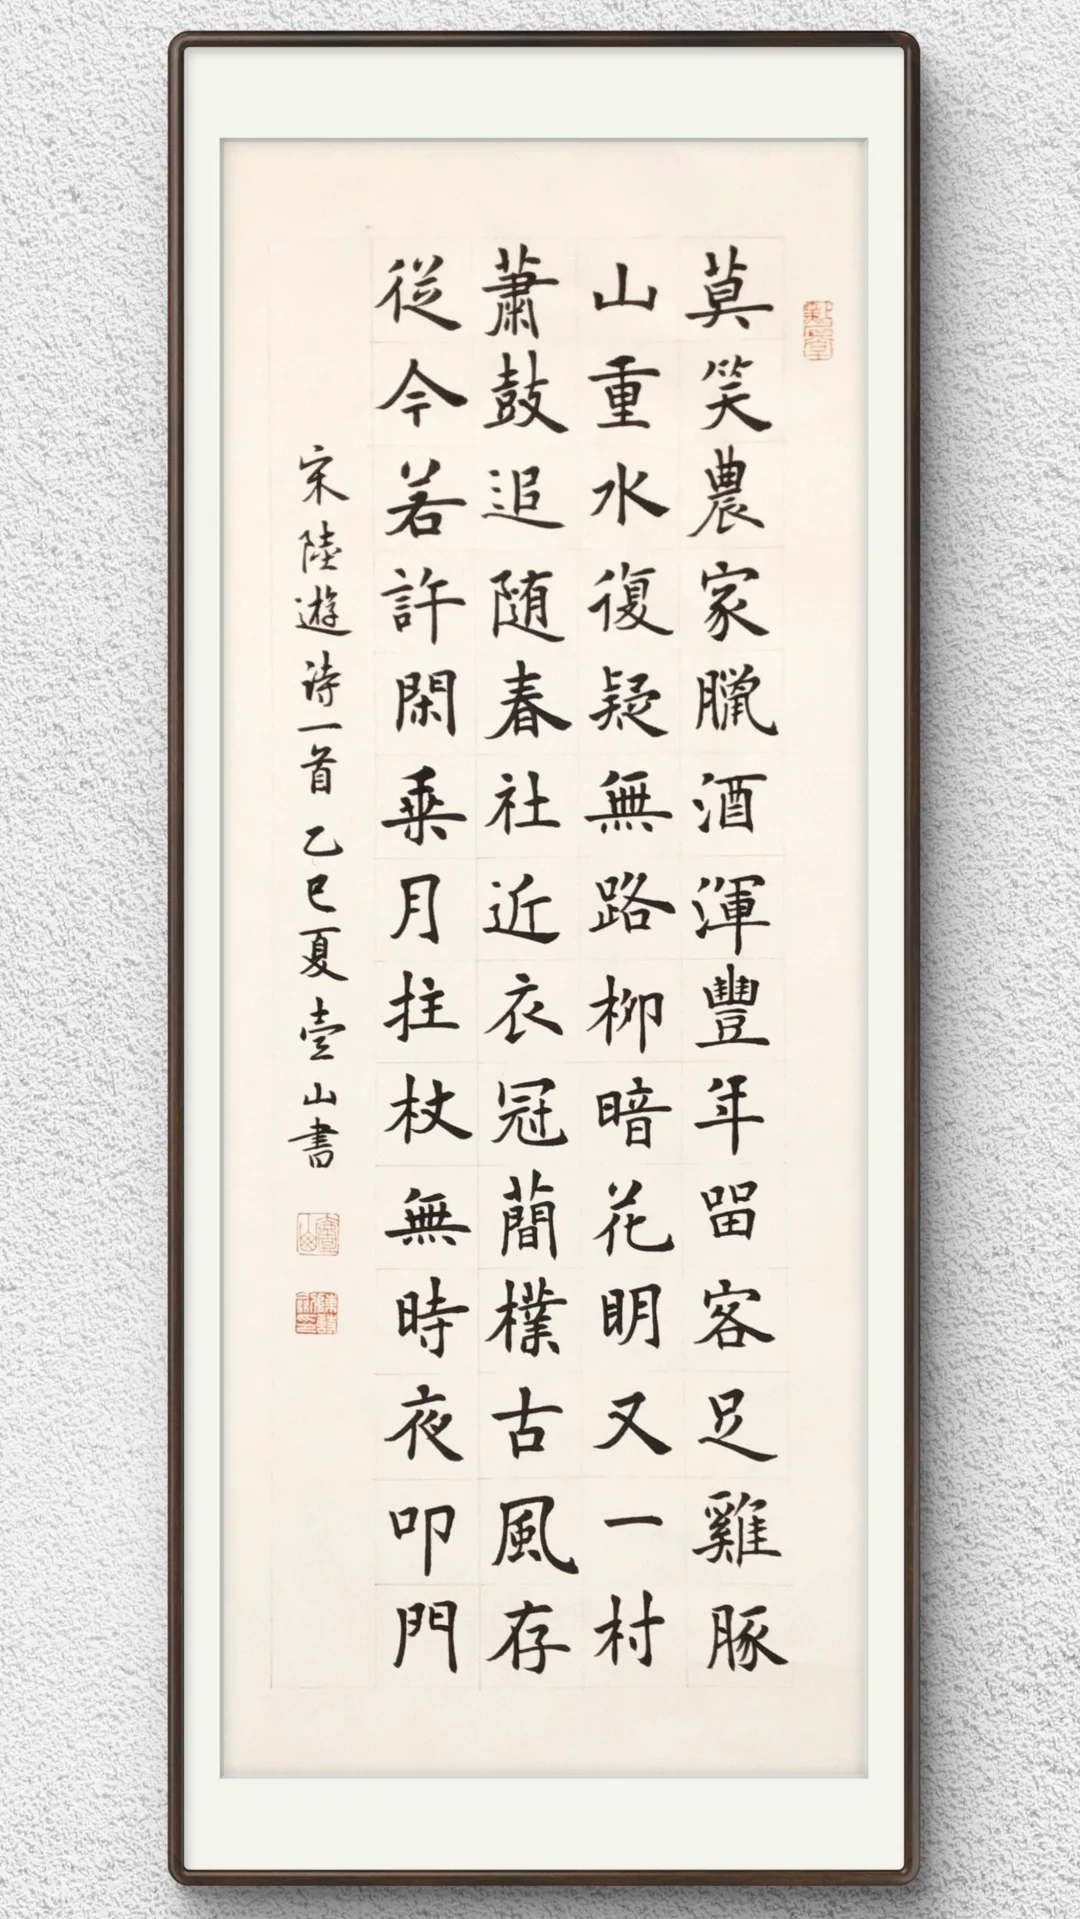 莫笑農家臘酒渾豐年留客足雞豚
山重水復疑無路柳暗花明又一村
蕭鼓追随春社近衣冠簡樸古風存
從今若許閑乗月拄杖無時夜叩門
宋陸遊诗一首乙巳夏壹山書